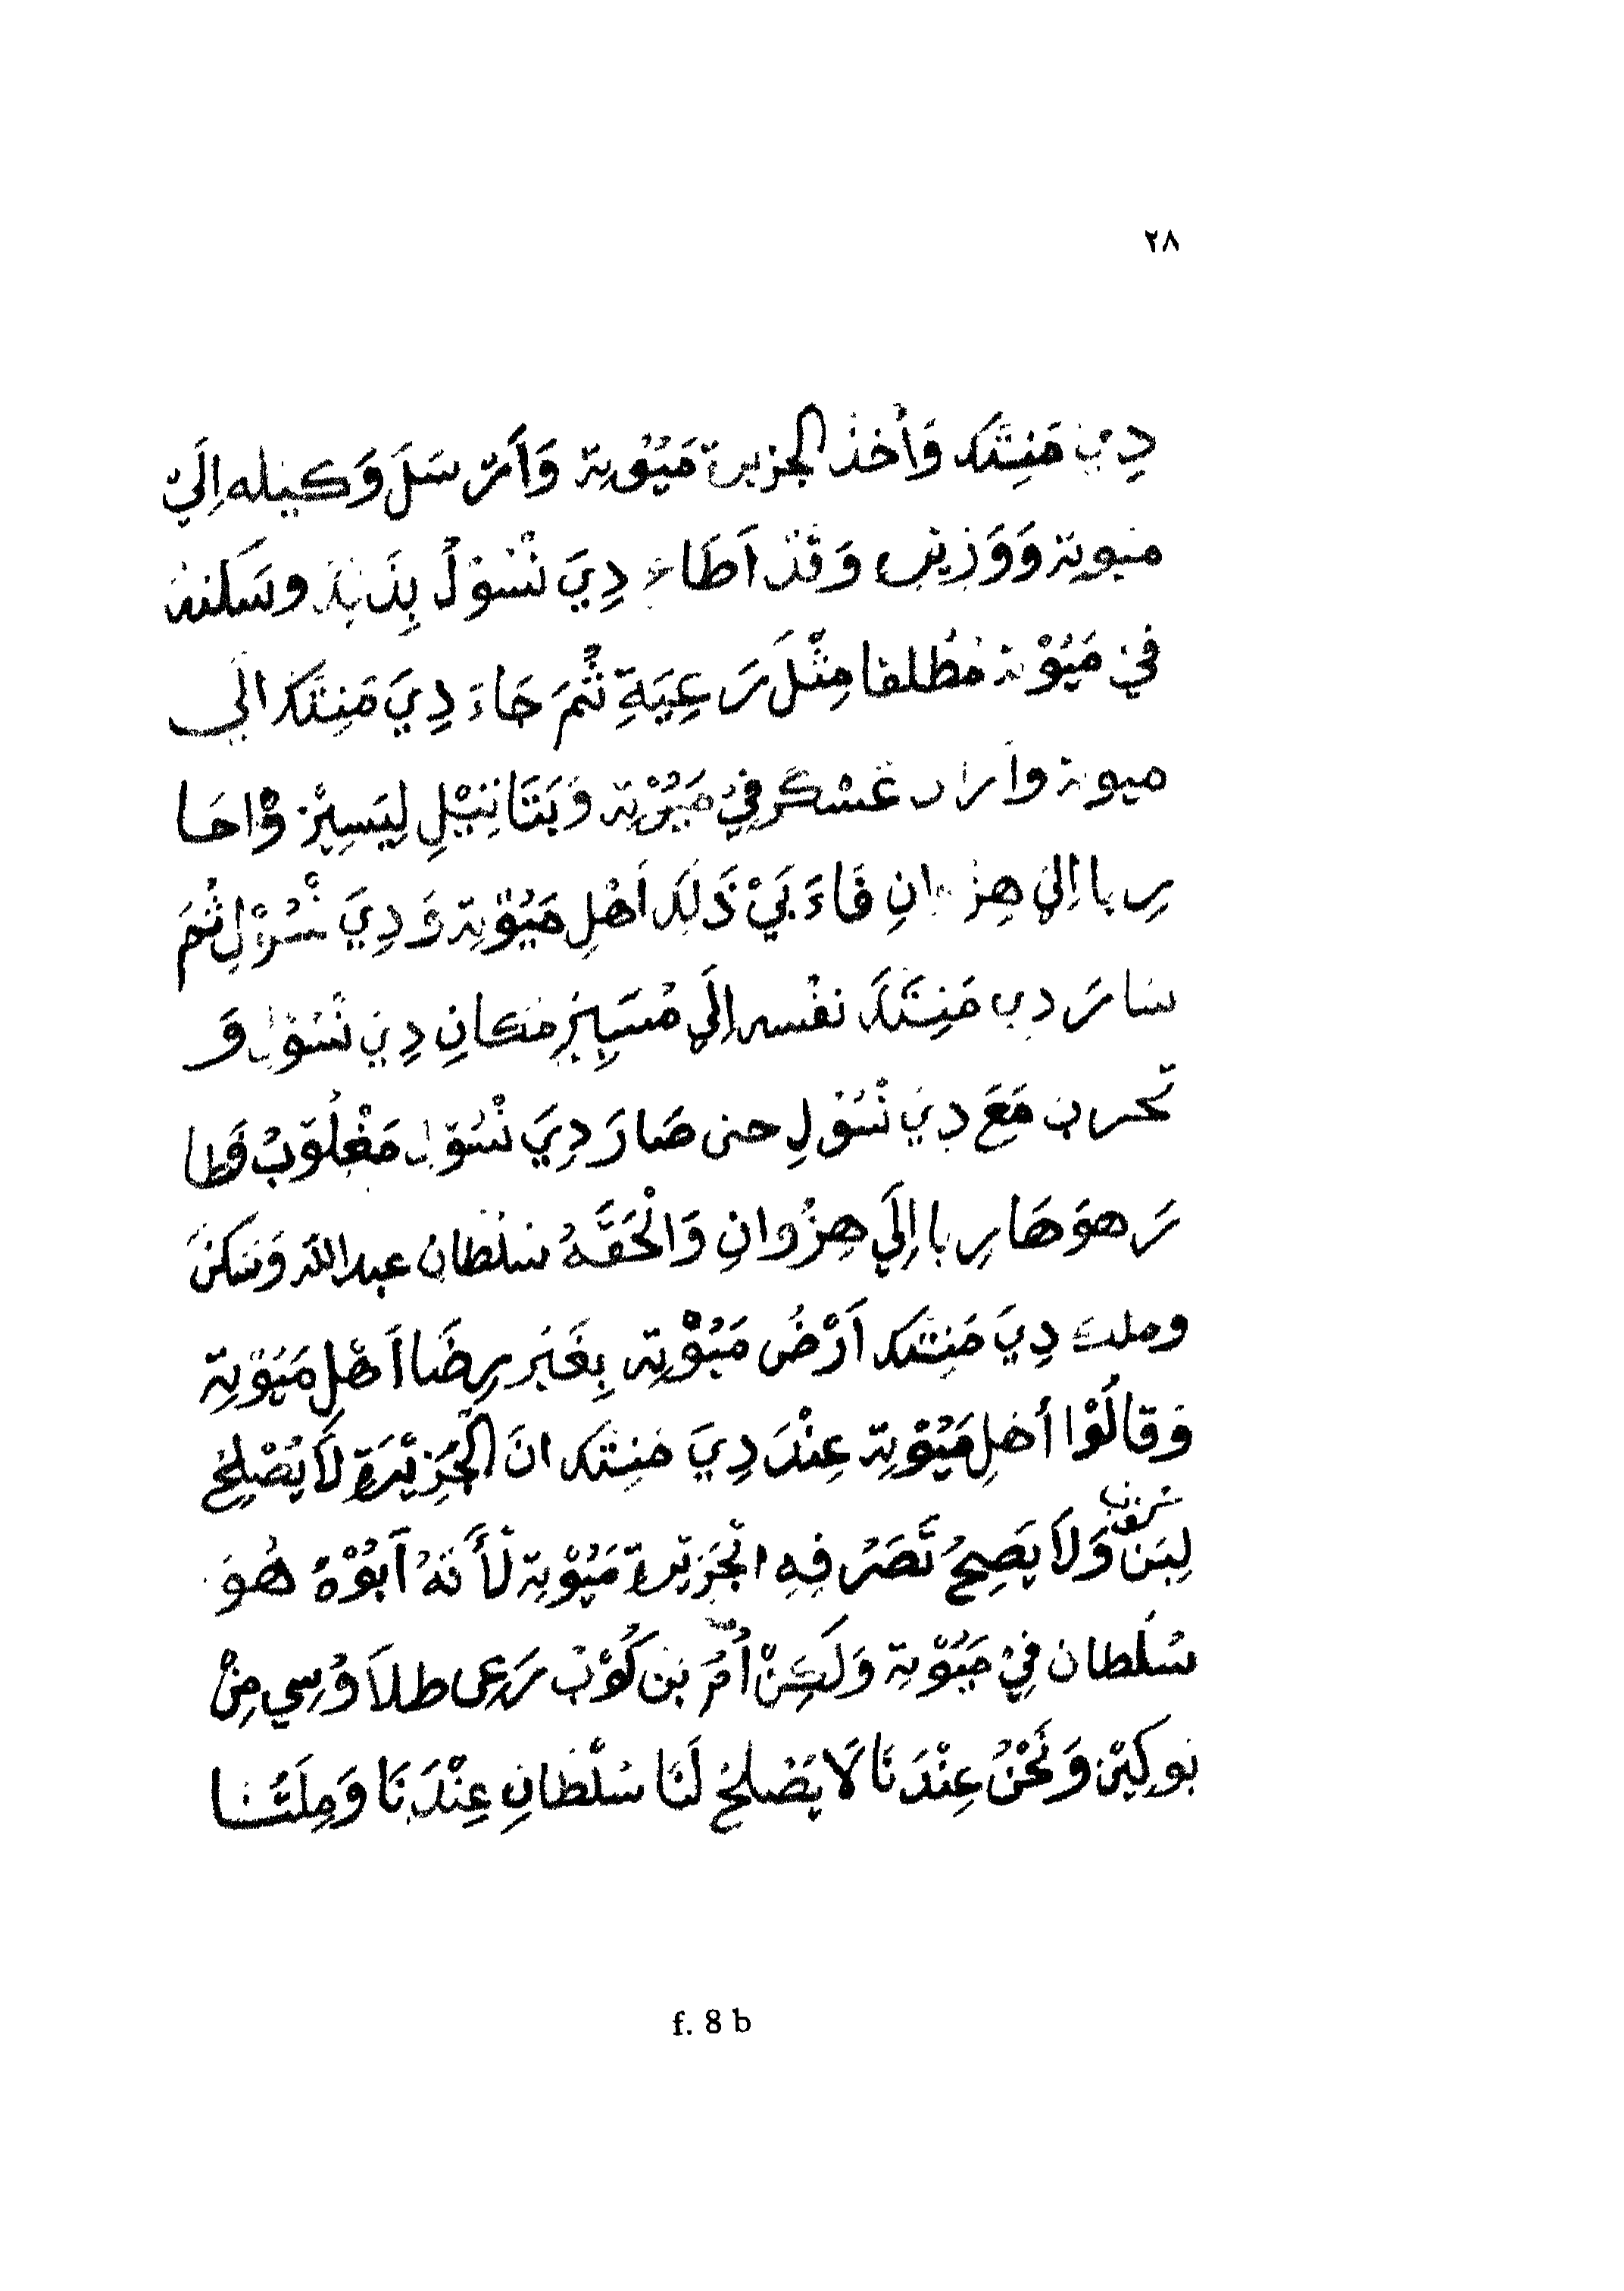 ٢٨
دِيَ مَنِتَكَ وَأَخَذَ الجزيرة مَيُوْتِة وَأَرْسَلَ وَكيله اِلَيْ
ميوتة وَوَزِيْر وَقَدْ اَطَاعِ دِيَ نْسُوْلْ بِذَ وسَكَنَهُ
فِيْ مَيُوْتة مُطْلقا مِثْلَ رَعِيَةِ ثْمَ جَاءَ دِيَ مَنِتَكَ الَي
ميوتة وأراد عَسْكَر فِيْ مَيُوْتِة وَبَتَانِيْلِ لِيَسِيْرْ وْاحَا
رِبا اِلَيْ هِزْوانِ فَاءَبَيْ ذَلِكَ اَهْلِ مَيُوْتِة وَدِيَ نْسُوْلِ ثُمَ
سَارَ دِيَ مَنِتَكَ نفْسه اِلَيْ مْسَيِيْرِ مَكانِ دِيَ نْسُوْلِ وَ
تَحرب مَعَ دِيَ نْسُوْلِ حتى صَارَ دِيَ نْسُوْلْ مَغْلُوْبْ فَطا
رَ هوَ هَارِبا اِلَيْ هِزْوانِ وَالْحَقَّهُ سَلْطان عبد اللّه وَسَكَنَ
وملك دِيَ مَنِتَكَ اَرْضُ مَيُوْتِة بِغَيْرِ رِضَا اَهْلِ مَيُوْتِة
وَقالُوْا أَهْلِ مَيُوْتِة عِنْدَ دِيَ مَنِتَكَ انَ الْجَزِيْرَةِ لَا يُصْلِحْ
لِبَنْ وَلَا يَصِحُ تَصَرُفِهِ الْجَزِيْرة مَيُوْتِة لَأَنَهُ اَبُوْهُ هُوَ
سُلْطان فِيْ مَيُوْتِة وَلَكِنْ أُمُ بَنِ كُوْبْ رَعِى طلاَوُسِي مِنْ
بوكِيْن وَنَحْنُ عِنْدَنَا لَا يَصْلحْ لَنَا سُلْطانِ عِنْدَنَا وَمِلَتُنا
f. 8 b